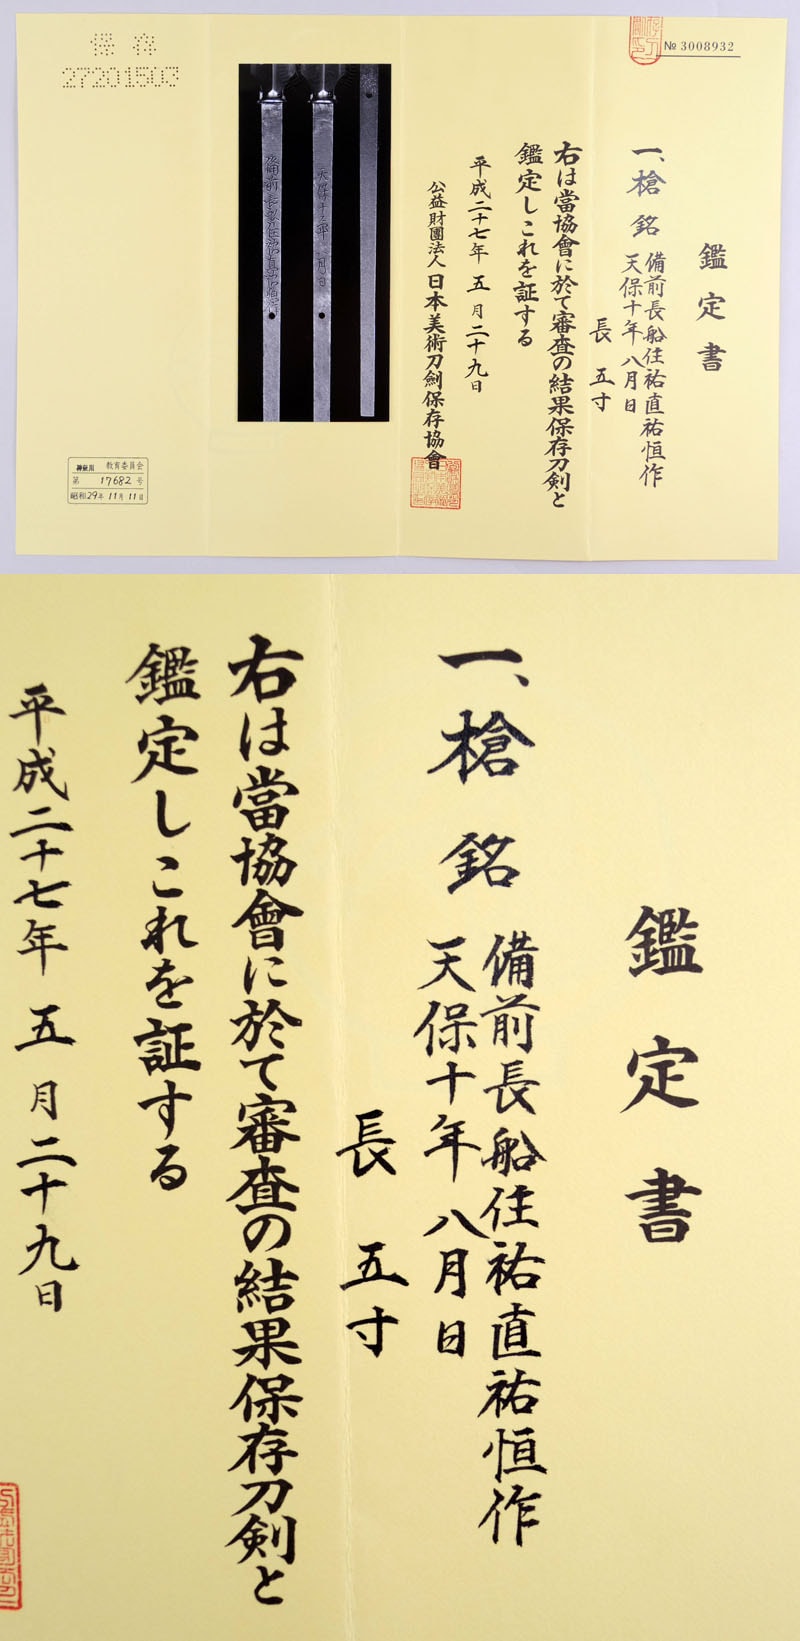 保存
27201503
№ 3008932
鑑定書
一、槍 銘 備前長船住祐直祐恒作
天保十年八月日
長 五寸
右は當協會に於て審査の結果保存刀剣と
鑑定しこれを証する
平成二十七年 五月二十九日
公益財團法人 日本美術刀劍保存協會
神奈川 教育委員会
第 17682 号
昭和29年11月11日
鑑定書
一、槍 銘 備前長船住祐直祐恒作
天保十年八月日
長 五寸
右は當協會に於て審査の結果保存刀剣と
鑑定しこれを証する
平成二十七年 五月二十九日